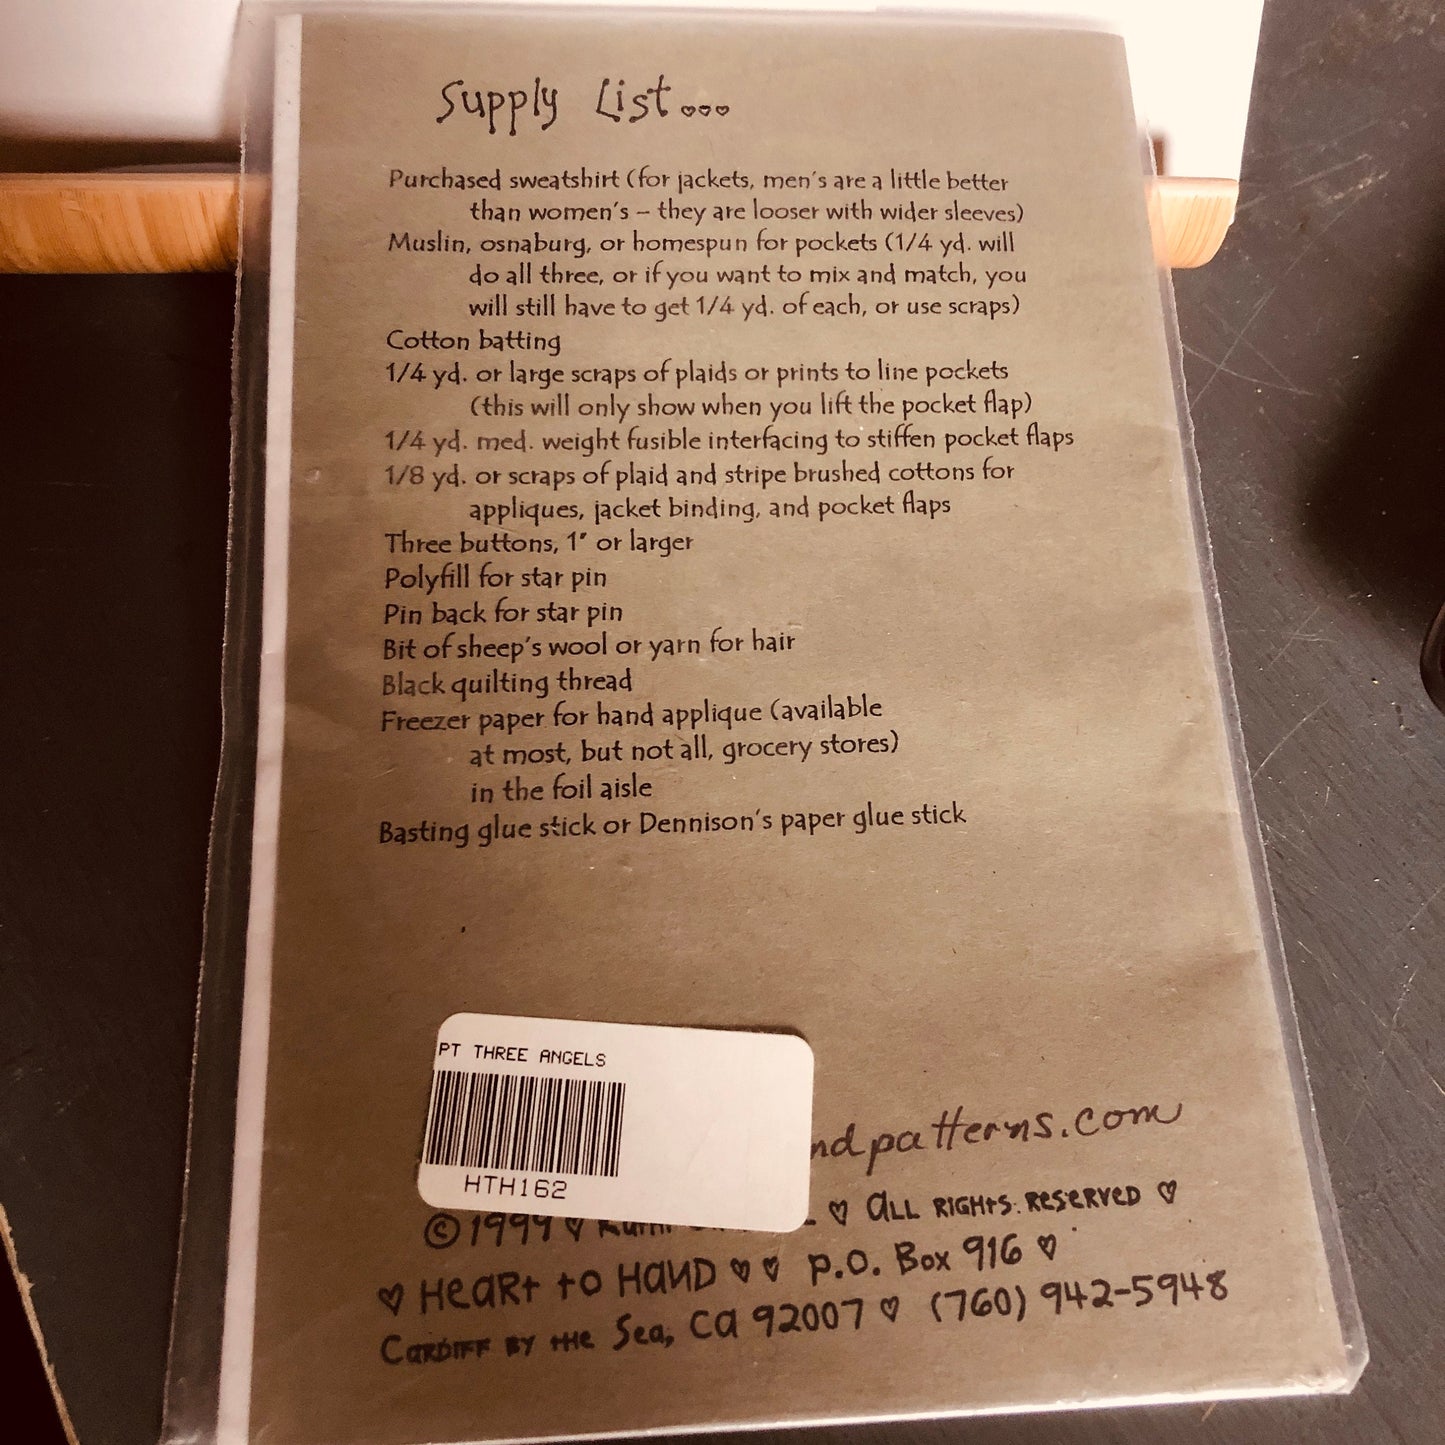 Supply List...
Purchased sweatshirt (for jackets, men's are a little better
than women's – they are looser with wider sleeves)
Muslin, osnaburg, or homespun for pockets (1/4 yd. will
do all three, or if you want to mix and match, you
will still have to get 1/4 yd. of each, or use scraps)
Cotton batting
1/4 yd. or large scraps of plaids or prints to line pockets
(this will only show when you lift the pocket flap)
1/4 yd. med. weight fusible interfacing to stiffen pocket flaps
1/8 yd. or scraps of plaid and stripe brushed cottons for
appliques, jacket binding, and pocket flaps
Three buttons, 1" or larger
Polyfill for star pin
Pin back for star pin
Bit of sheep's wool or yarn for hair
Black quilting thread
Freezer paper for hand applique (available
at most, but not all, grocery stores)
in the foil aisle
Basting glue stick or Dennison's paper glue stick
PT THREE ANGELS
HTH162
ndpatterns.com
© 1999 ♡ ♡ ALL RIGHTS RESERVED ♡
♡ HEART TO HAND ♡ ♡ P.O. Box 916 ♡
CARDIFF BY THE Sea, CA 92007 ♡ (760) 942-5948